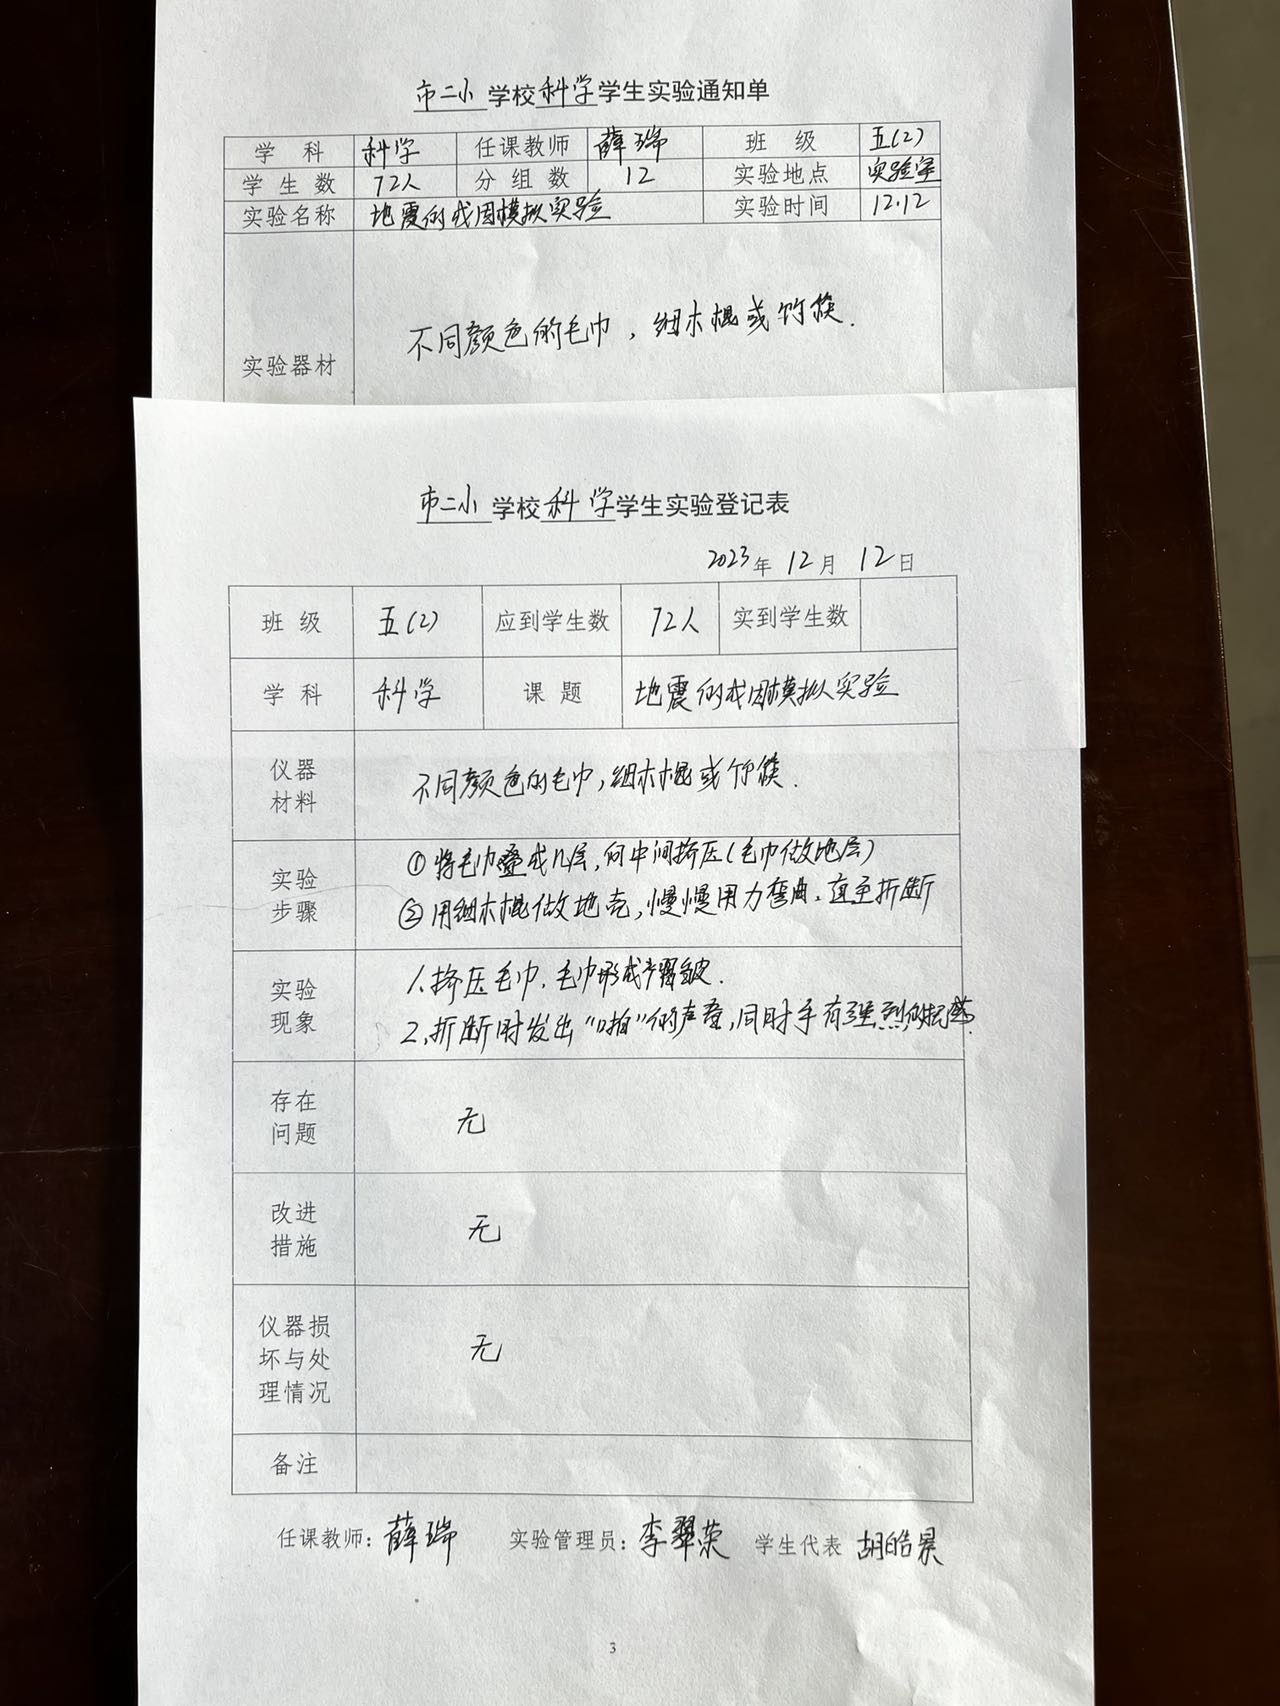 市二小学校科学学生实验通知单
学科 科学 任课教师 薛瑞 班级 五(2)
学生数 72人 分组数 12 实验地点 实验室
实验名称 地震的成因模拟实验 实验时间 12.12
实验器材 不同颜色的毛巾，细木棍或竹筷.
市二小学校科学学生实验登记表
2023年12月12日
班级 五(2) 应到学生数 72人 实到学生数
学科 科学 课题 地震的成因模拟实验
仪器
材料
不同颜色的毛巾，细木棍或竹筷.
实验
步骤
①将毛巾叠成几层，向中间挤压(毛巾做地层)
②用细木棍做地壳，慢慢用力弯曲，直至折断
实验
现象
1.挤压毛巾，毛巾形成褶皱.
2.折断时发出“啪”的声音，同时手有强烈的振感.
存在
问题
无
改进
措施
无
仪器损
坏与处
理情况
无
备注
任课教师：薛瑞 实验管理员：李翠荣 学生代表 胡皓
3